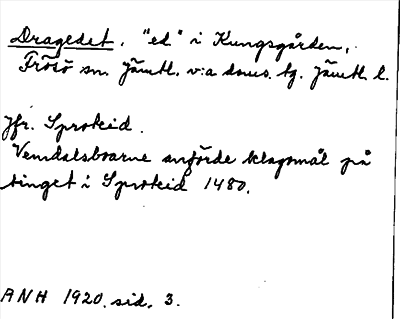 Dragedet, "ed" i Kungsgården,
Frösö sn. Jämtl. v:a doms. tg. Jämtl. l.
Jfr. Sproteid.
Vemdalsboarne anförde klagomål på
tinget i Sproteid 1480.
ANH 1920. sid. 3.